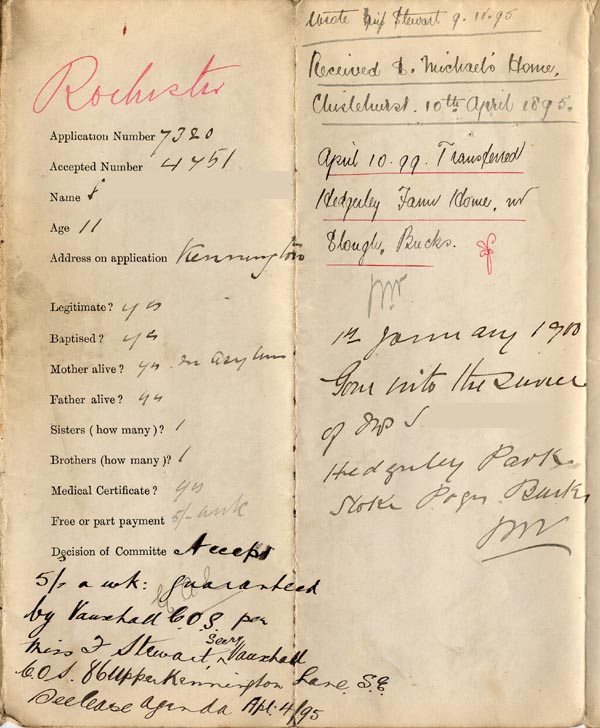 Rochester
Application Number 7320
Accepted Number 4451
Name
Age 11
Address on application Kennington
Legitimate? yes
Baptised? yes
Mother alive? yes. In asylum
Father alive? yes
Sisters (how many)? 1
Brothers (how many)? 1
Medical Certificate? yes
Free or part payment 5/- a wk
Decision of Committe Accept
5/- a wk: guaranteed
by Vauxhall C O S per
Miss F Stewart, Secy Vauxhall
C O S. 86 Upper Kennington Lane. S.E.
See Case Agenda Apl. 4/95
Wrote Miss Stewart 9.
Received S. Michael's Home,
Chislehurst. 10th April 1895.
April 10. 99. Transferred
Hedgerley Farm Home, nr
Slough, Bucks.
1st January 1900
Gone into the service
of Mrs S
Hedgerley Park
Stoke Poges Bucks